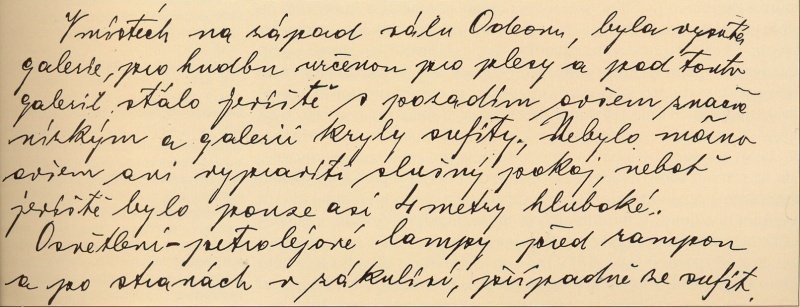 V místech na západ sálu Odeonu, byla vysutá
galerie, pro hudbu určenou pro plesy a pod touto
galerií stálo jeviště s pozadím ovšem značně
nízkým a galerii kryly sufity. Nebylo možno
ovšem ani vypraviti slušný pokoj, neboť
jeviště bylo pouze asi 4 metry hluboké.
Osvětlení - petrolejové lampy před rampou
a po stranách v zákulisí, případně ze sufit.